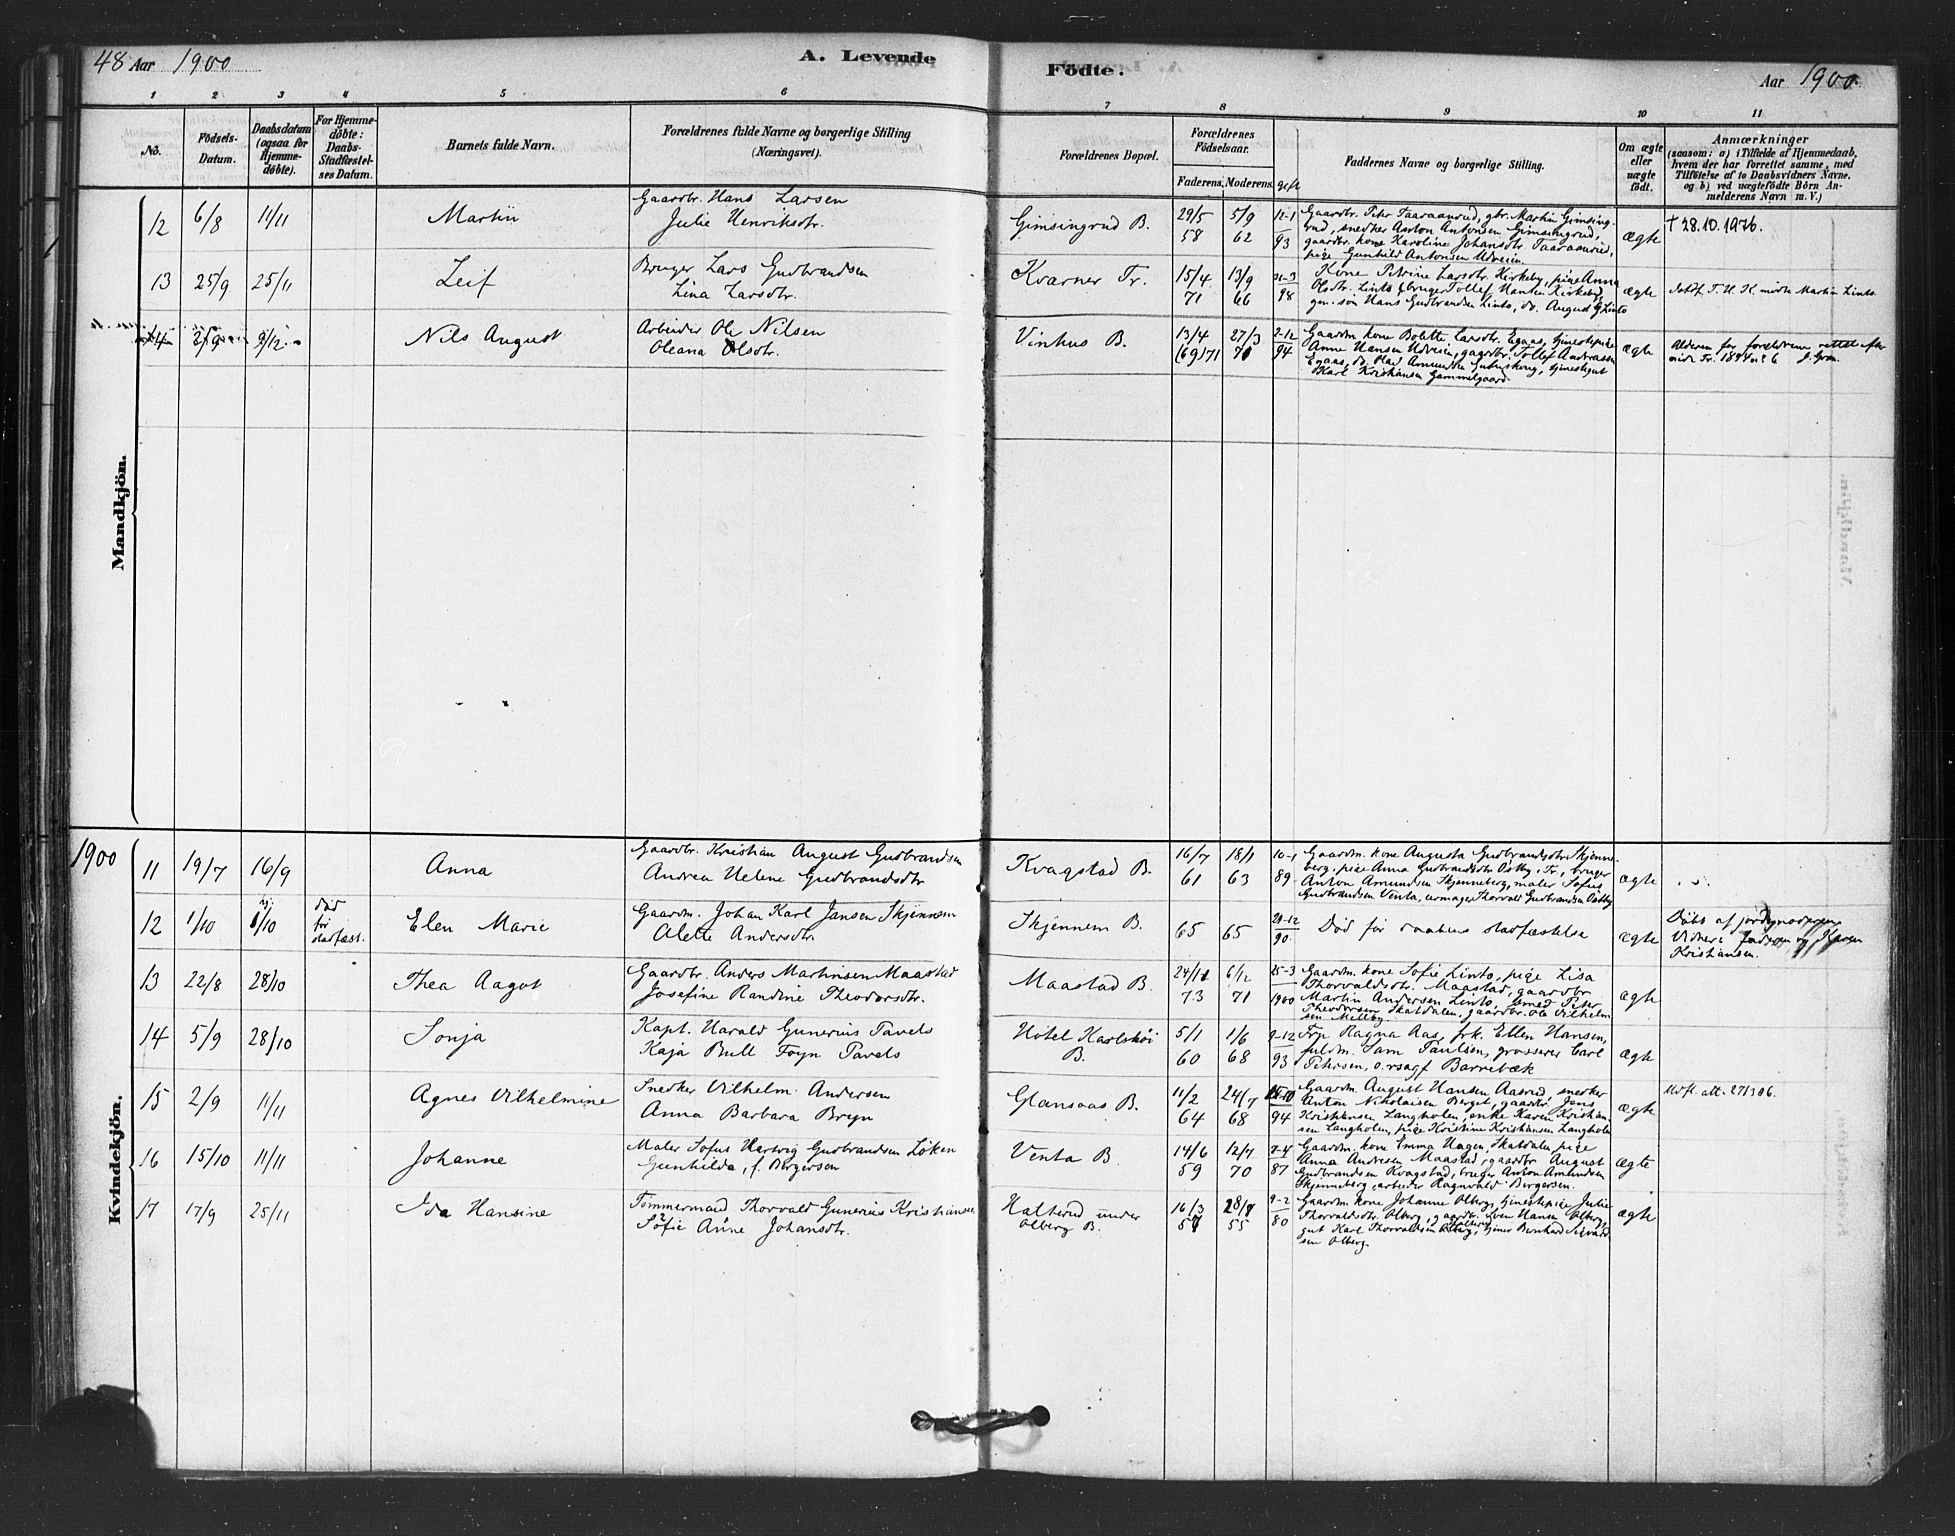 48 Aar 1900
A. Levende
Födte.
Aar 1900
1 2 3 4 5 6 7 8 9 10 11
No.
Födsels-
Datum.
Daabsdatum
(ogsaa for
Hjemme-
döbte).
For Hjemme-
döbte:
Daabs-
Stadfæstel-
ses Datum.
Barnets fulde Navn.
Forældrenes fulde Navne og borgerlige Stilling
(Næringsvei).
Forældrenes Bopæl.
Forældrenes
Födselsaar.
Faderens. Moderens.
gift
Faddernes Navne og borgerlige Stilling.
Om ægte
eller
uægte
födt.
Anmærkninger
(saasom: a) i Tilfælde af Hjemmedaab,
hvem der har forrettet samme, med
Tilföielse af to Daabsvidners Navne,
og b) ved uægtefödte Börn An-
melderens Navn m. V.)
Mandkjön.
12 6/8 11/11 Martin
Gaardbr. Hans Larsen
Julie Henriksdtr.
Gimsingrud B.
29/5 58 5/9 62 12-1 93
Gaardbr. Peter Taaraanrud, gbr. Martin Gimsing-
rud, snedker Anton Antonsen Gimsingrud,
gaardbr. kone Karoline Johansdtr. Taaraanrud,
pige Gunhild Antonsen Udveien
ægte
† 28.10.1976.
13 25/9 25/11 Leif
Bruger Lars Gudbrandsen
Lina Larsdtr.
Kvarner Tr.
15/4 71 13/9 66 31-3 98
Kone Petrine Larsdtr. Kirkeby, pige Anna
Olsdtr. Linto, bruger Tollef Hansen Kirkeby,
gm. søn Hans Gudbrandsen Linto, do. August G. Linto
ægte
14 9/12 Nils August
Arbeider Ole Nilsen
Oleana Olsdtr.
Vinhus B.
13/4 (69) 71 27/3 71 2-12 94
Gaardm. kone Bolette Larsdtr. Egaas, tjenestepige
Anne Hansen Udveien, gaardbr. Tollef Andreassen
Egaas, do. Olaf Amundsen, tjenestegut
Karl Kristiansen Gammelgaard
ægte
Alderen for foreldrene rettet efter
1900
Kvindekjön.
11 19/7 16/9 Anna
Gaardbr. Kristian August Gudbrandsen
Andrea Helene Gudbrandsdtr
Kragstad B.
16/7 61 18/1 63 10-1 89
Gaardm. kone Augusta Gudbrandsdtr. Skjenne-
berg, pige Anna Gudbrandsdtr Østby, Tr., bruger
Anton Amundsen Skjenneberg, maler Sofus
Gudbrandsen Venta, urmager Thorvald Gudbrandsen Østby
ægte
12 1/10 hj. 1/10 død
før
stadfæst.
Elen Marie
Gaardm. Johan Karl Jansen Skjennem
Alette Andersdtr.
Skjennem B.
65 65 28-12 90.
Død før daabens stadfæstelse
ægte
Døbt af jordmoderen
Vidner: faderen og Karen
Kristiansen.
13 22/8 28/10 Thea Aagot
Gaardbr. Anders Martinsen Maastad
Josefine Randine Theodorsdtr.
Maastad B.
24/11 73 6/12 71 25-3 1900
Gaardm. kone Sofie Linto, pige Lisa
Thorvaldsdtr. Maastad, gaardbr
Martin Andersen Linto, smed Peter
Theodorsen Skatdalen, gaardbr. Ole Vilhelm
sen Mellby.
ægte
14 5/9 28/10 Sonja
Kapt. Harald Gunerius Pavels
Kaja Bull Foyn Pavels
Hotel Karlshøi
B.
5/1 60 1/6 68 9-12 93
Fru Ragna Aas, frk. Ellen Hansen,
fuldm. Sam Paulsen, grosserer Carl
Petersen, o.rsagf. Barrebæk
ægte
15 2/9 11/11 Agnes Vilhelmine
Snedker Vilhelm Andersen
Anna Barbara Bryn
Glansaas B.
11/2 64 24/7 68 94
Gaardm. August Hansen Aasrud, snedker
Anton Nikolaisen Berget, gaardbr. Jens
Kristiansen Langholen, enke Karen Kristian
sen Langholen, pige Kristine Kristiansen Langholen
ægte
Udfl. att. 27/3 06.
16 15/10 11/11 Johanne
Maler Sofus Hartvig Gudbrandsen Løken
Gunhilda, f. Børgersen
Venta B.
14/6 59 12/7 70 7-4 87
Gaardm. kone Emma Hagen, Skatdalen, pige
Anna Andresen Maastad, gaardbr August
Gudbrandsen Kragstad, bruger Anton Amundsen
Skjenneberg, arbeider Ragnvald Børgersen.
ægte
17 17/9 25/11 Ida Hansine
Tømmermand Thorvald Gunerius Kristiansen
Sofie Anne Johansdtr.
Halterud under
Olberg B.
16/3 57 28/7 55 9-2 80
Gaardm. kone Johanne Olberg, tjenestepige Julie
Thorvaldsdtr. Olberg, gaardbr. Sven Hansen Olberg,
gut Karl Thorvaldsen Olberg, tjener Bernhard Sigvard
sen Olberg.
ægte